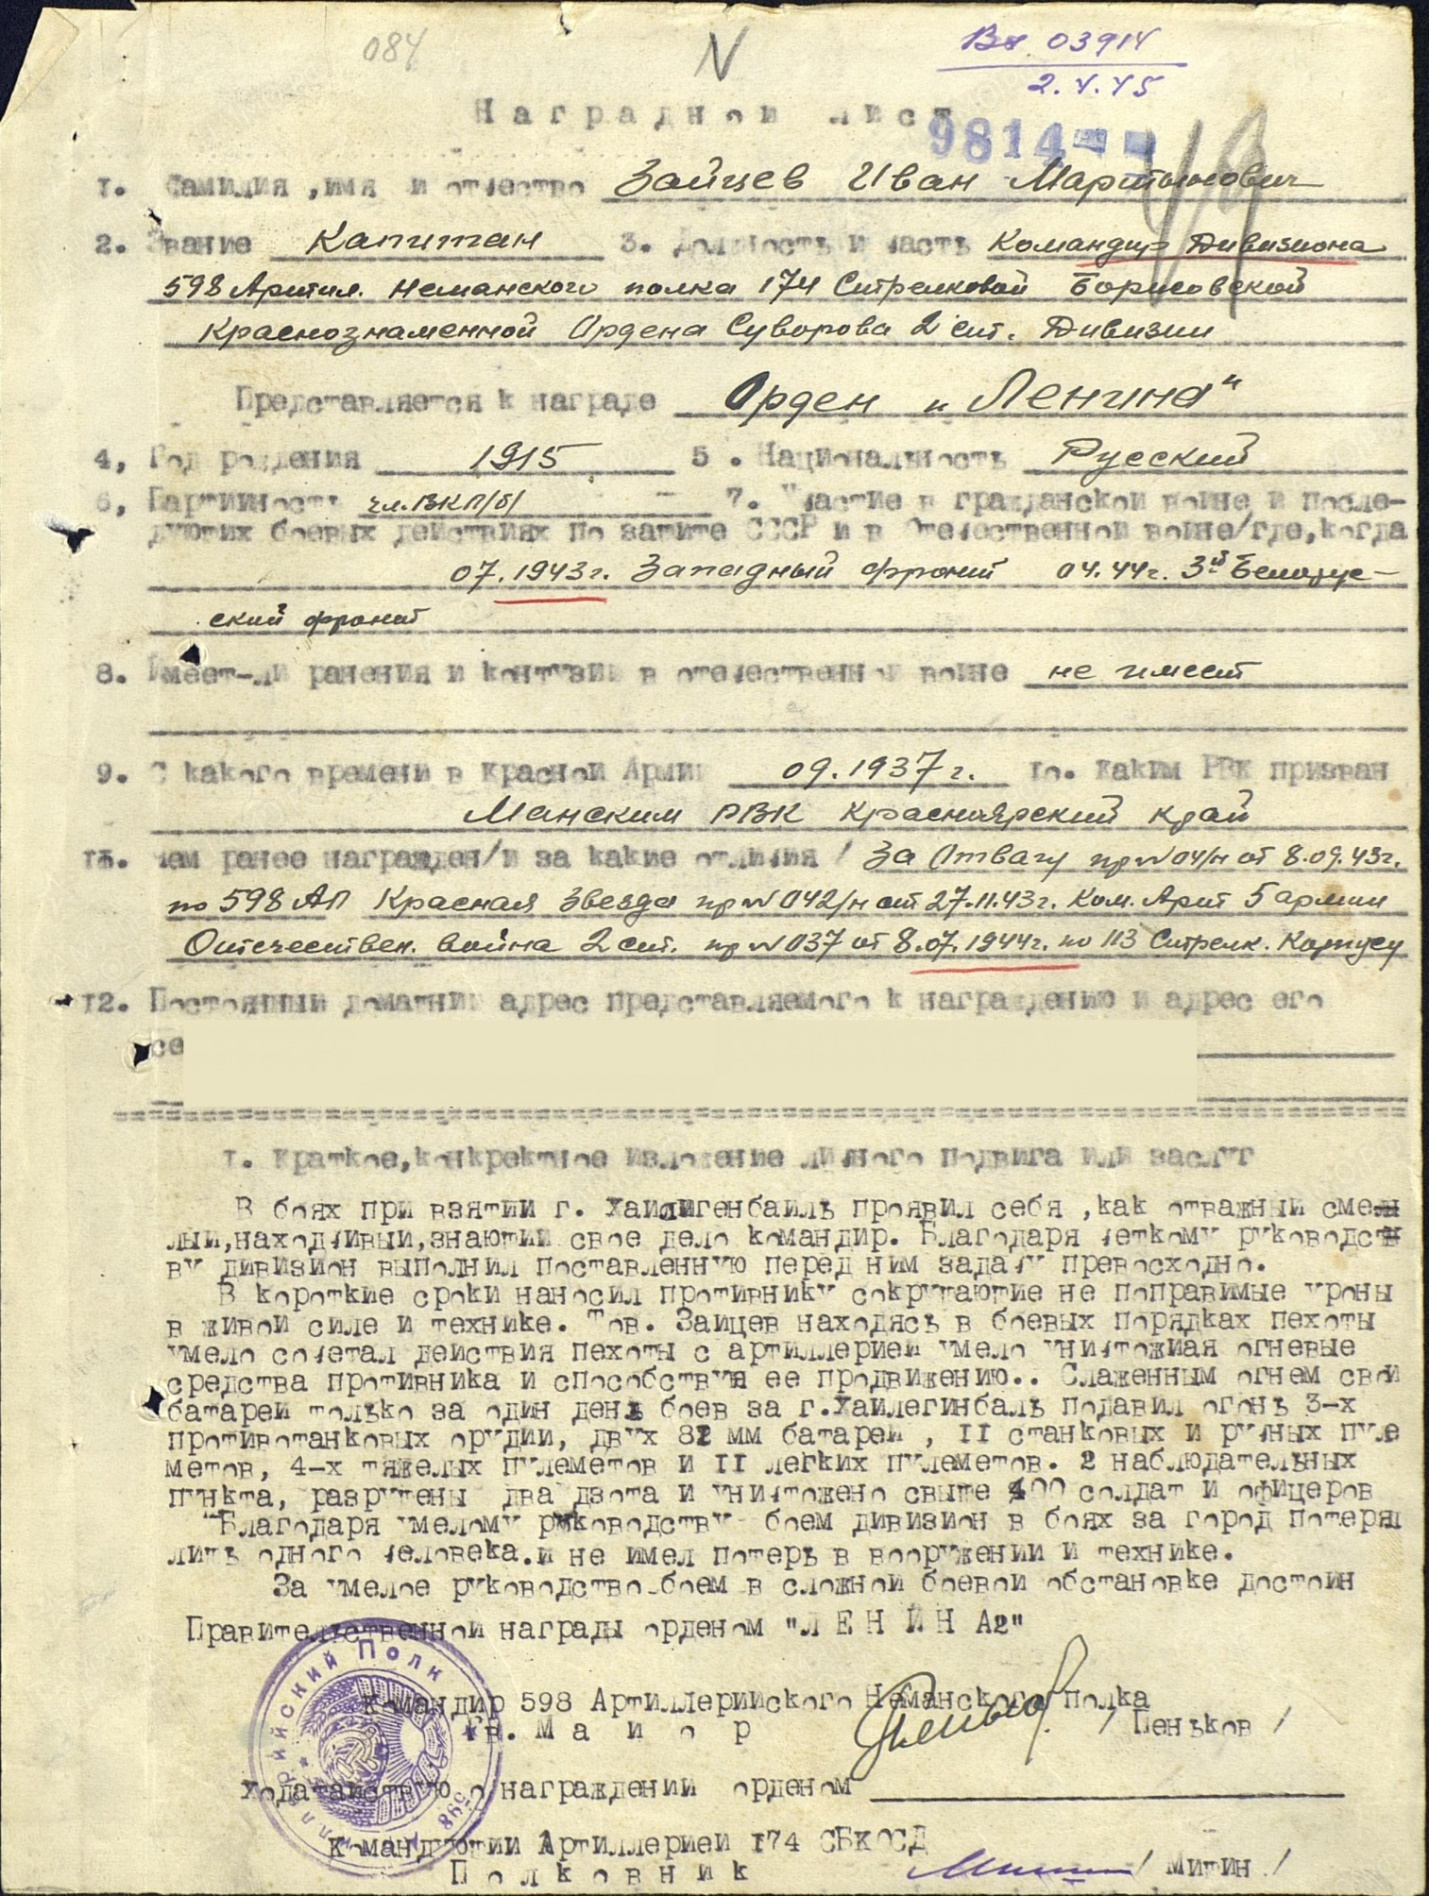 084
N
Вх 03914
2.4.45
Наградной лист
9814
1. Фамилия ,имя и отчество Зайцев Иван Мартынович
2. Звание Капитан 3. Должность и часть Командир Дивизиона
598 Артил. Неманского полка 174 Стрелковой Борисовской
Краснознаменной Ордена Суворова 2 ст. Дивизии
Представляется к награде Орден "Ленина"
4, Год рождения 1915 5 . Национальность Русский
6, Партийность чл.ВКП/б/ - 7. Участие в гражданской войне и после-
дующих боевых действиях по защите СССР и в Отечественной войне/где,когда
07.1943г. Западный фронт 04.44г. 3й Белорус-
ский фронт
8. Имеет-ли ранения и контузии в отечественной войне не имеет
9. С какого времени в Красной Армии 09.1937г. 10. Каким РВК призван
Манским РВК Красноярский край
11. Чем ранее награжден/и за какие отличия/ За Отвагу пр N 04/н от 8.09.43г.
по 598 АП Красная Звезда пр N 042/н от 27.11.43г. Ком. Арт 5 армии
Отечествен. война 2 ст. пр N 037 от 8.07.1944г. по 113 Стрелк. Корпусу
12. Постоянный домашний адрес представляемого к награждению и адрес его
се
1. Краткое,конкретное изложение личного подвига или заслуг
В боях при взятии г. Хайлигенбайль проявил себя ,как отважный сме
лый,находчивый,знающий свое дело командир. Благодаря четкому руководст
ву дивизион выполнил поставленную перед ним задачу превосходно.
В короткие сроки наносил противнику сокрушающие не поправимые уроны
в живой силе и технике. Тов. Зайцев находясь в боевых порядках пехоты
умело сочетал действия пехоты с артиллерией умело уничтожиая огневые
средства противника и способствуя ее продвижению.. Слаженным огнем свой
батарей только за один день боев за г.Хайлегинбаль подавил огонь 3-х
противотанковых орудий, двух 82 мм батарей , 11 станковых и ручных пуле
метов, 4-х тяжелых пулеметов и 11 легких пулеметов. 2 наблюдательных
пункта, разрушены два дзота и уничтожено свыше 400 солдат и офицеров
Благодаря умелому руководству боем дивизион в боях за город потерял
лишь одного человека.и не имел потерь в вооружении и технике.
За умелое руководство боем в сложной боевой обстановке достоин
Правительственной награды орденом "ЛЕНИНА"
Командир 598 Артиллерийского Неманского полка
Гв. Майор / Пеньков /
Ходатайствую о награждении орденом
Командующий Артиллерией 174 СБКОСД
Полковник / Митин /